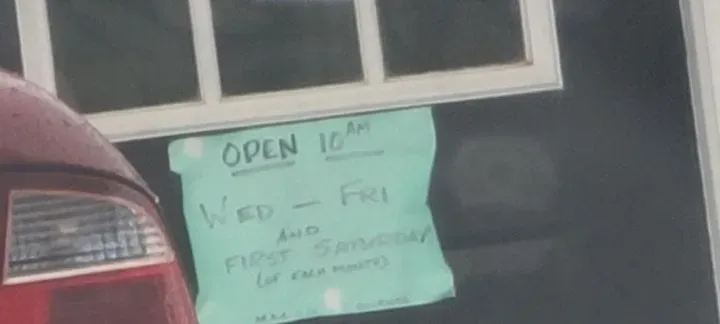 OPEN 10AM
WED - FRI
AND
FIRST SATURDAY
(OF EACH MONTH)